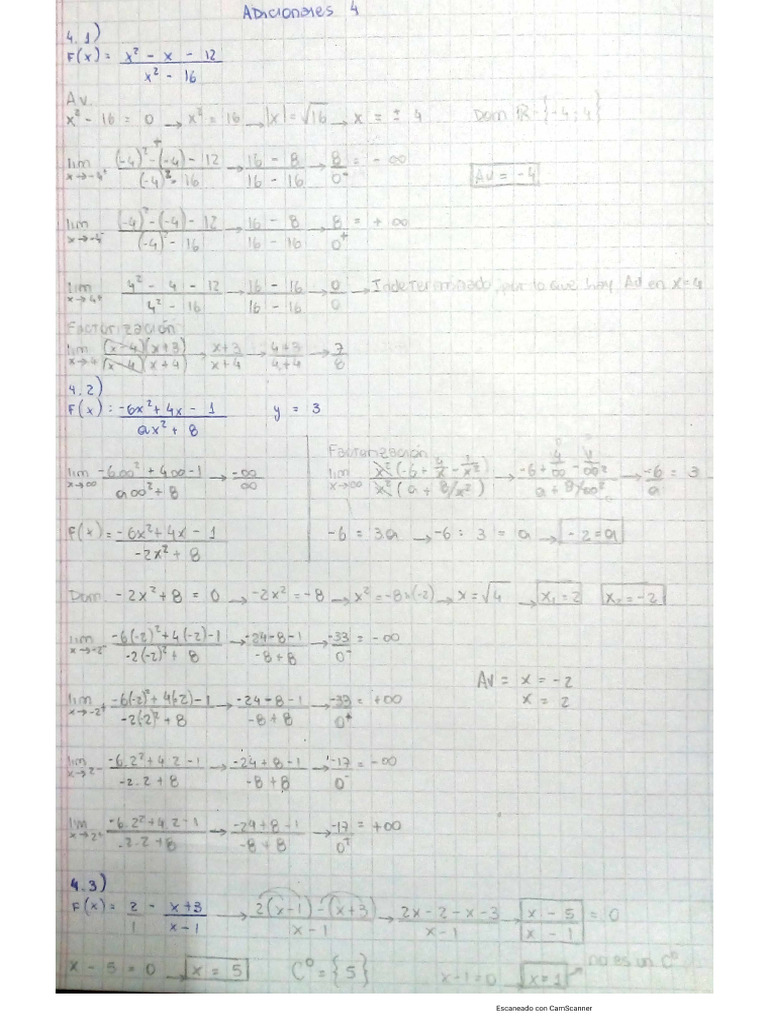 Adicionales 4
4.1)
F(x) = (x² - x - 12)/(x² - 16)
Av
x² - 16 = 0 → x² = 16 → |x| = √16 → x = ± 4 Dom ℝ - {-4; 4}
lim x→-4⁺ ((-4)² - (-4) - 12)/((-4)² - 16) → (16 - 8)/(16 - 16) → 8/0⁻ = - ∞ Av = -4
lim x→-4⁻ ((-4)² - (-4) - 12)/((-4)² - 16) → (16 - 8)/(16 - 16) → 8/0⁺ = + ∞
lim x→4⁺ (4² - 4 - 12)/(4² - 16) → (16 - 16)/(16 - 16) → 0/0 → Indeterminado, por lo que hay Ad en x=4
Factorización
lim x→4 ((x-4)(x+3))/((x-4)(x+4)) → (x+3)/(x+4) → (4+3)/(4+4) → 7/8
4.2)
F(x) : (-6x² + 4x - 1)/(ax² + 8) y = 3
Factorización
lim x→∞ (-6∞² + 4∞ - 1)/(a∞² + 8) → -∞/∞
lim x→∞ (x²(-6 + 4/x - 1/x²))/(x²(a + 8/x²)) → (-6 + 4/∞ - 1/∞²)/(a + 8/∞²) → -6/a = 3
F(x) = (-6x² + 4x - 1)/(-2x² + 8)
-6 = 3a → -6 : 3 = a → -2 = a
Dom. -2x² + 8 = 0 → -2x² = -8 → x² = -8:(-2) → x = √4 → x₁ = 2 x₂ = -2
lim x→-2⁻ (-6(-2)² + 4(-2) - 1)/(-2(-2)² + 8) → (-24 - 8 - 1)/(-8 + 8) → -33/0⁻ = -∞
Av = x = -2
x = 2
lim x→-2⁺ (-6(-2)² + 4(-2) - 1)/(-2(-2)² + 8) → (-24 - 8 - 1)/(-8 + 8) → -33/0⁺ = +∞
lim x→2⁻ (-6.2² + 4.2 - 1)/(-2.2 + 8) → (-24 + 8 - 1)/(-8 + 8) → -17/0⁻ = -∞
lim x→2⁺ (-6.2² + 4.2 - 1)/(-2.2 + 8) → (-24 + 8 - 1)/(-8 + 8) → -17/0⁻ = +∞
4.3)
F(x) = 2/1 - (x+3)/(x-1) → (2(x-1) - (x+3))/(x-1) → (2x - 2 - x - 3)/(x-1) → (x - 5)/(x - 1) = 0
x - 5 = 0 → x = 5 C⁰ = {5} x-1=0 x=1 → no es un C⁰
Escaneado con CamScanner